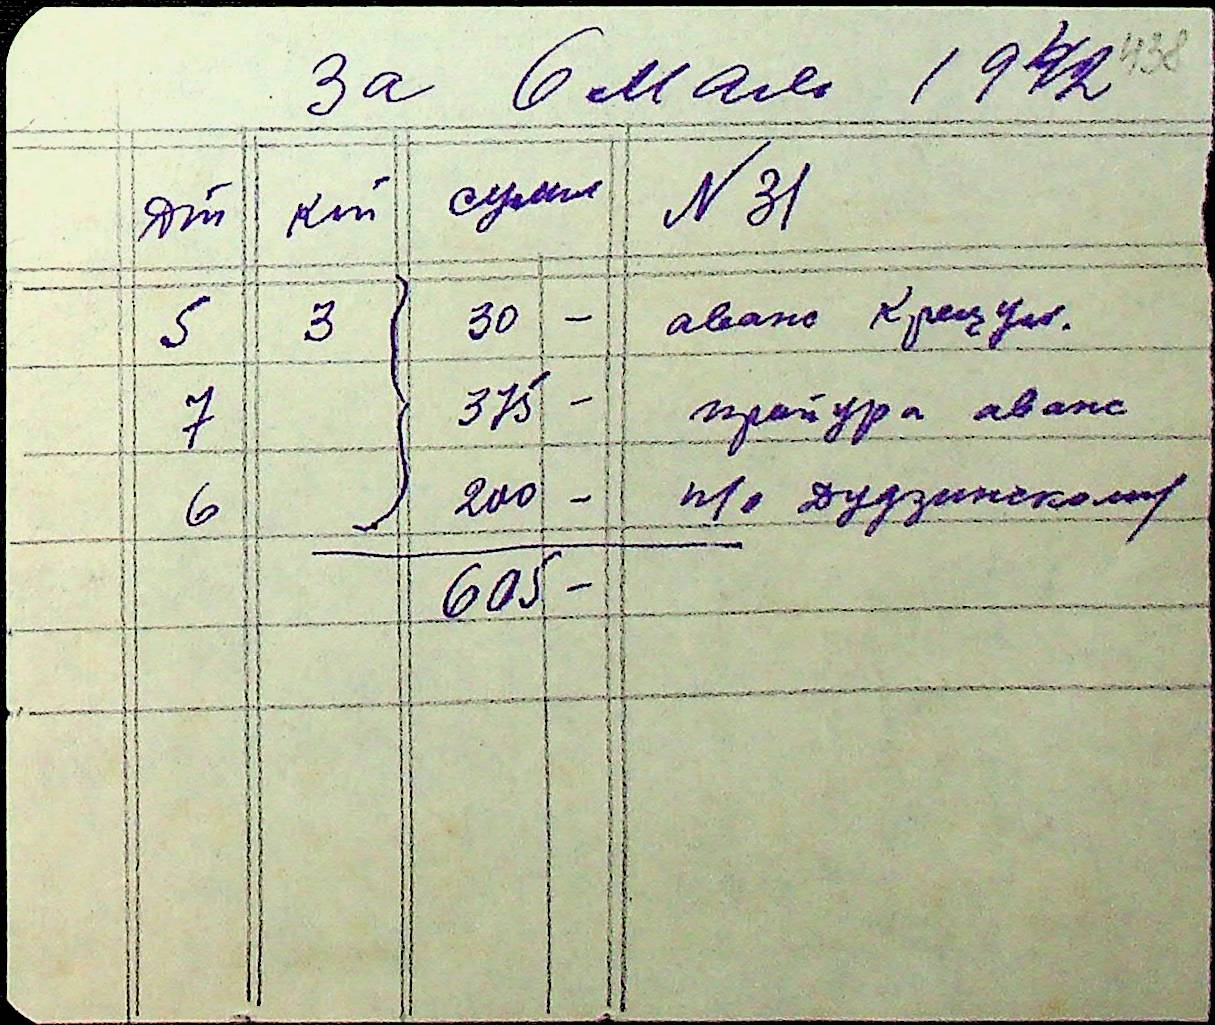 За 6 мая 1942 438
Дт Кт сумма N 31
5 3 30 – аванс Крецул.
7 375 – аванс
6 200 – п/о Дудзинскому
605 –